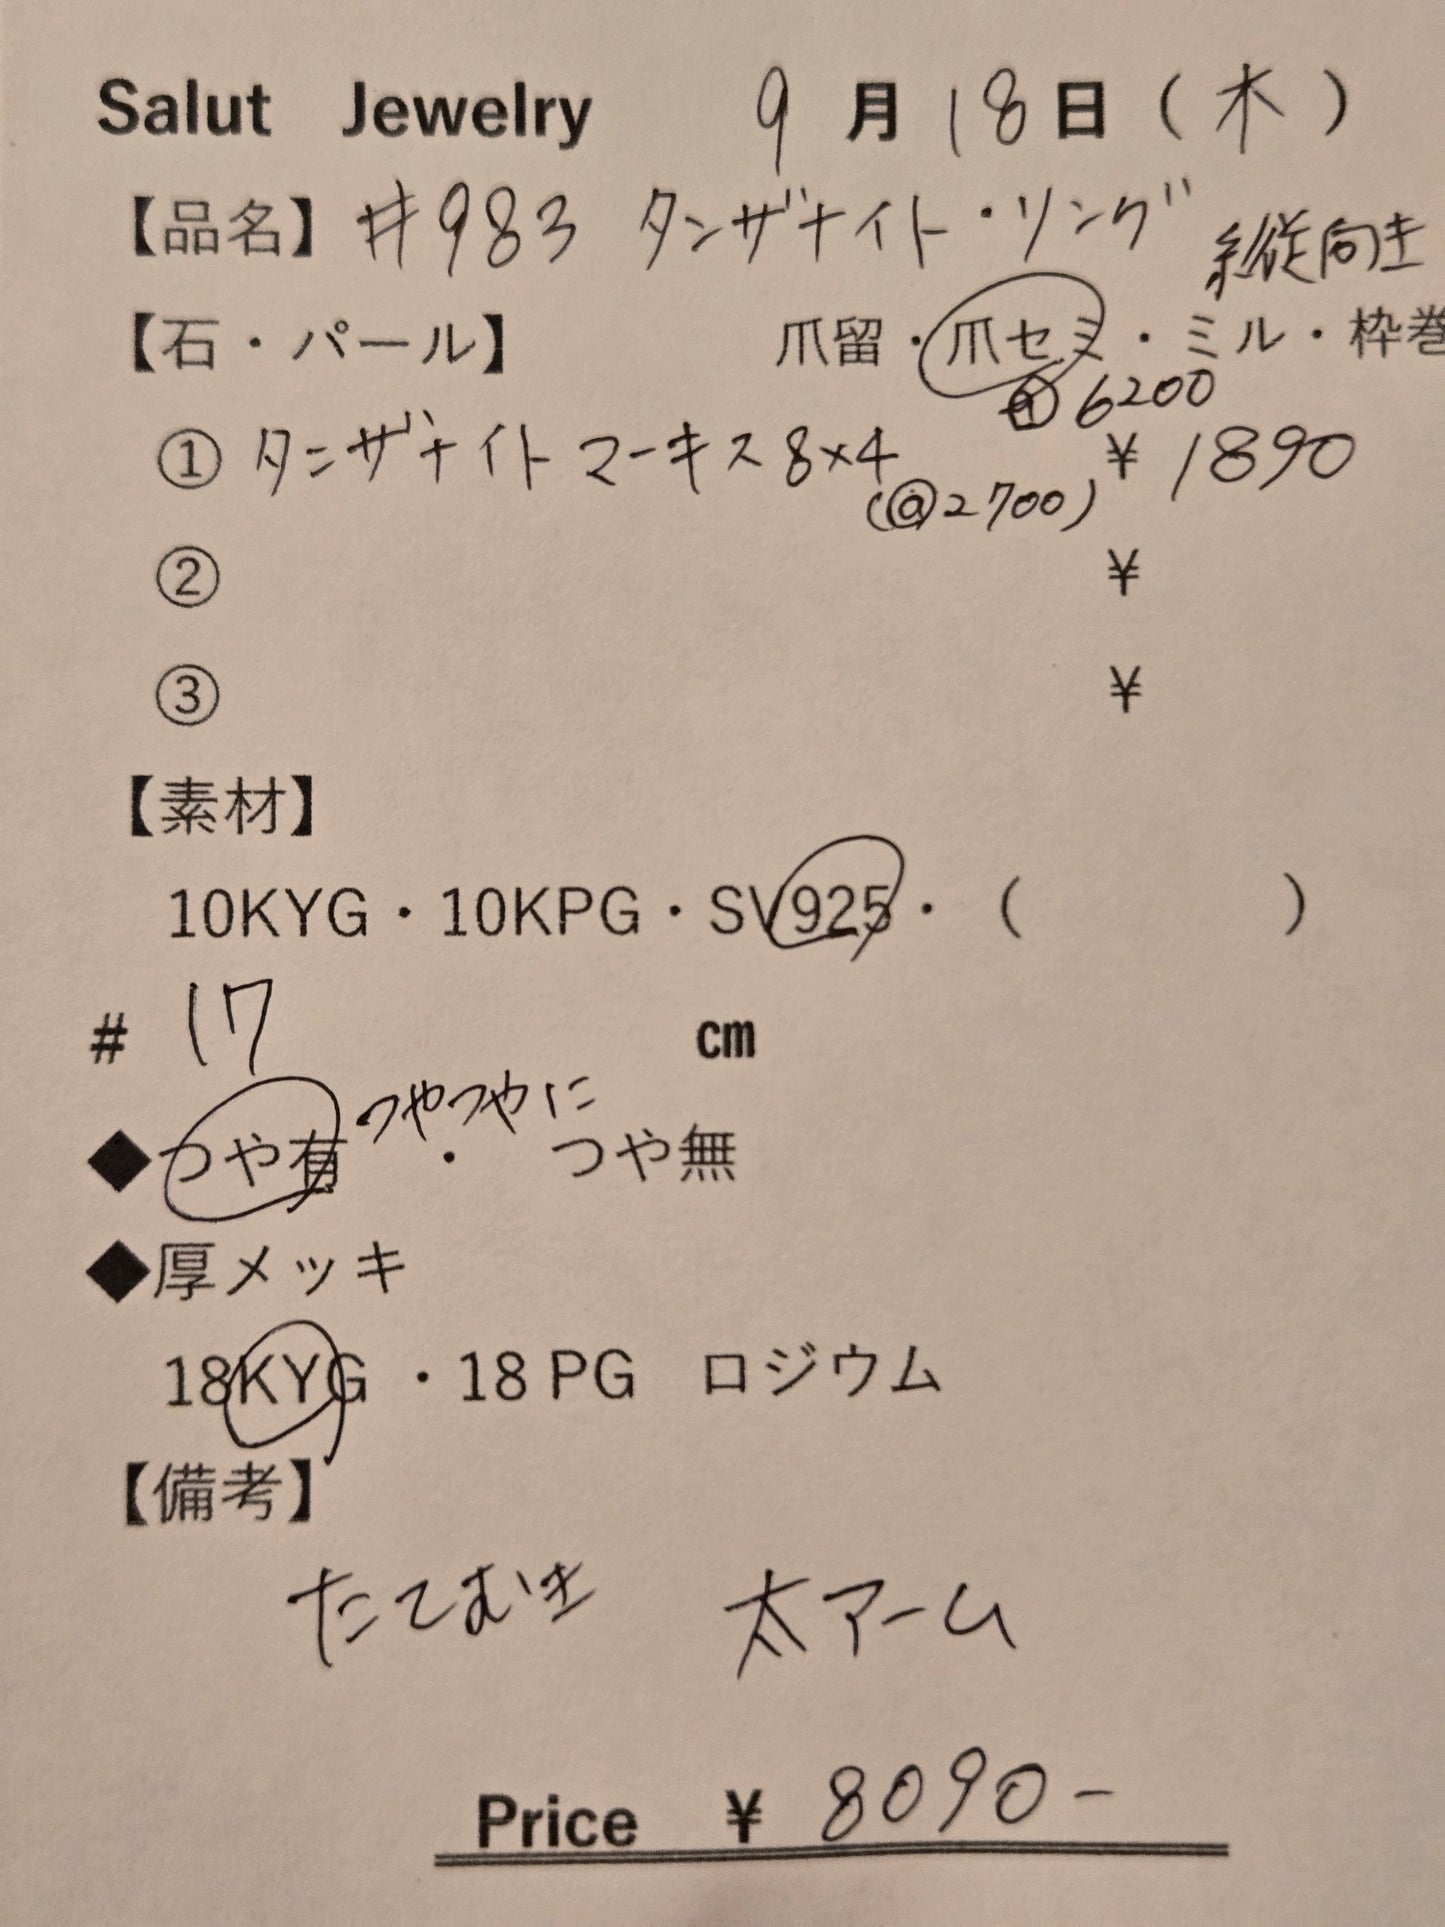 Salut Jewelry 9月18日(木)
【品名】#983 タンザナイト・リング 縦向き
【石・パール】 爪留・爪セミ・ミル・枠巻
6200
① タンザナイト マーキス 8×4 ¥1890
(@2700)
② ¥
③ ¥
【素材】
10KYG・10KPG・SV925・( )
# 17 cm
◆つや有 つやつやに ・ つや無
◆厚メッキ
18KYG ・18 PG ロジウム
【備考】
たてむき 太アーム
Price ¥ 8090-